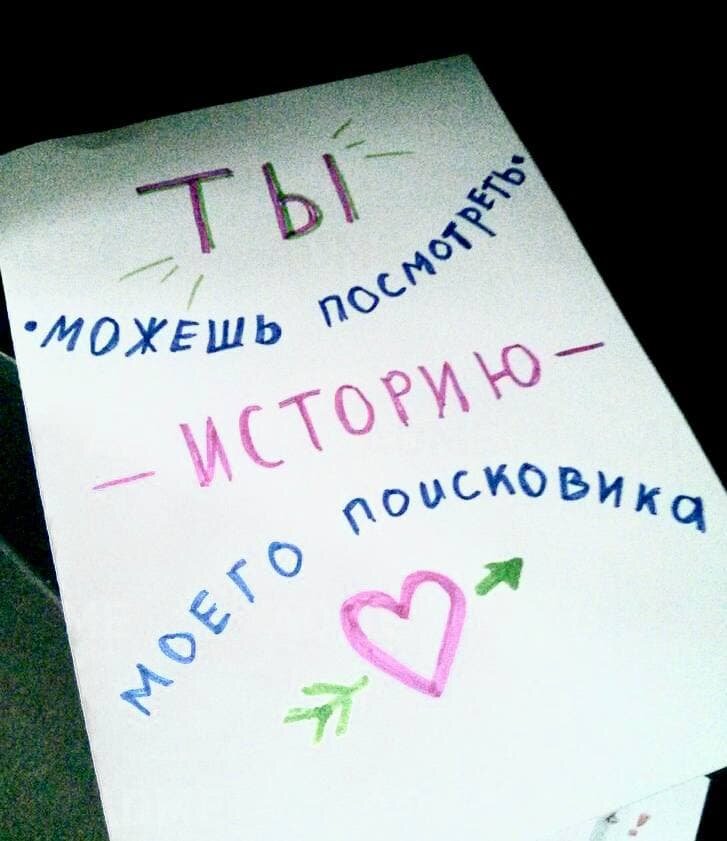 ТЫ
•МОЖЕШЬ ПОСМОТРЕТЬ•
— ИСТОРИЮ —
МОЕГО ПОИСКОВИКА